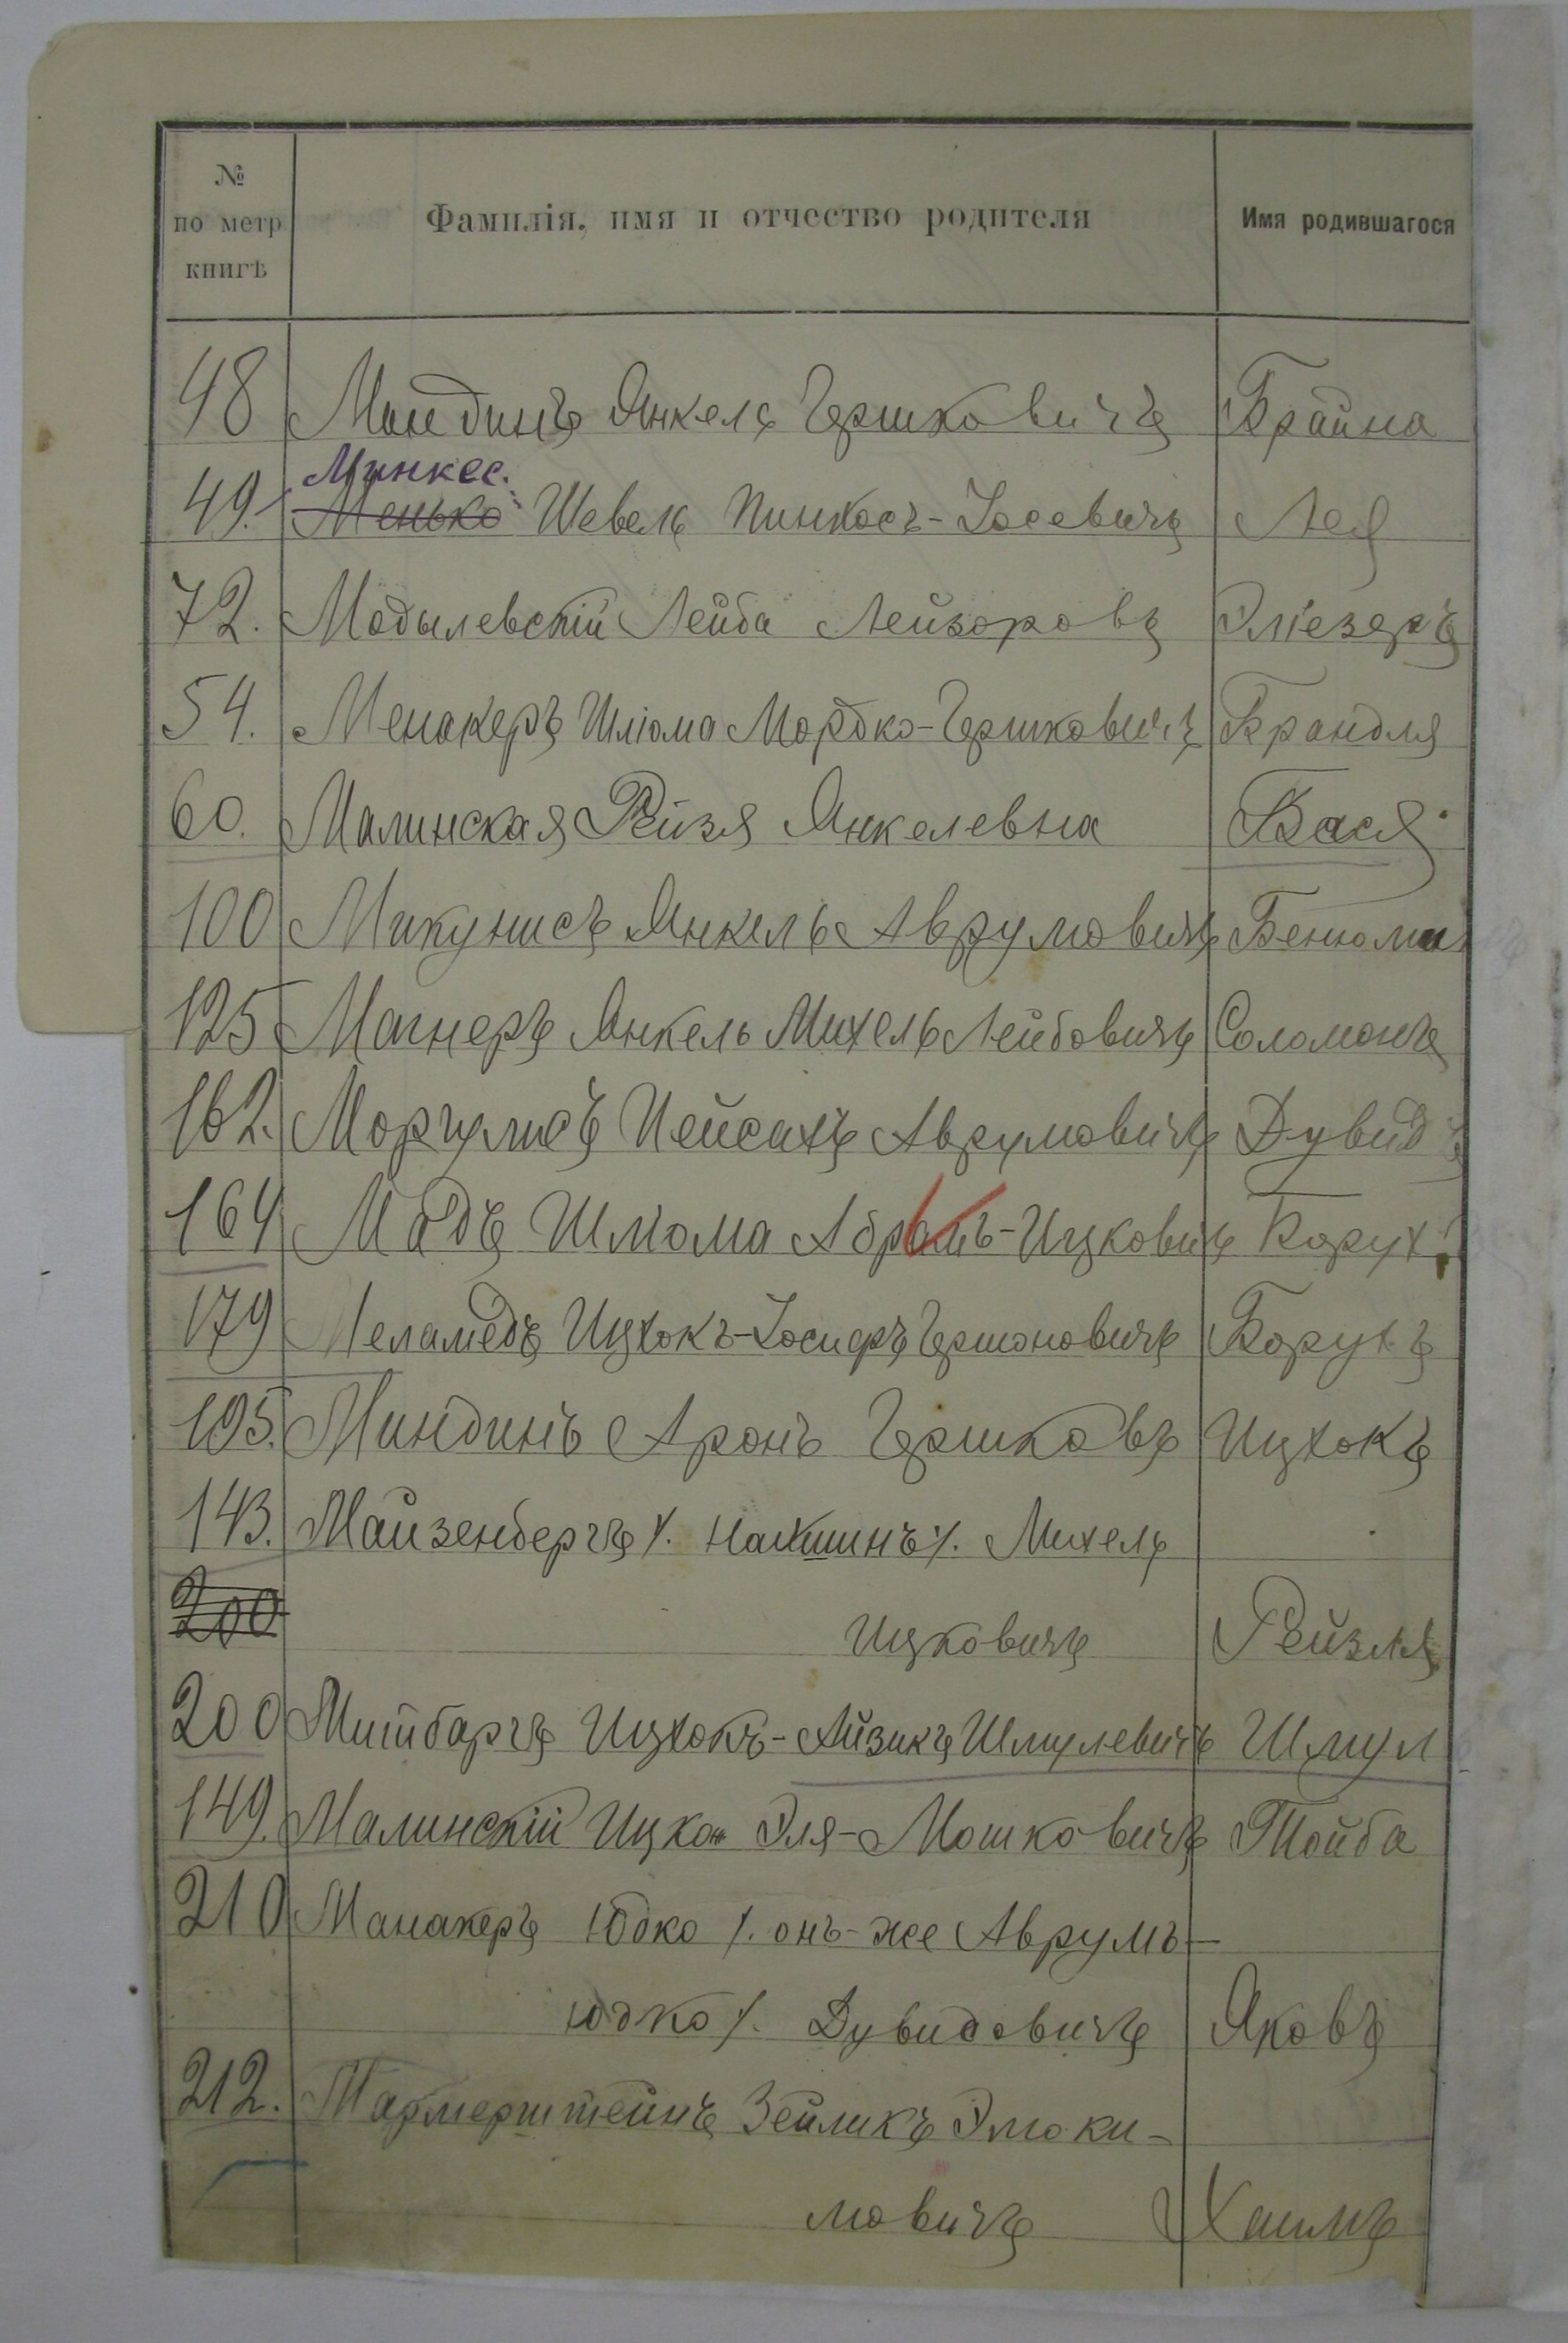 № по метр книгѣ Фамилія, имя и отчество родителя Имя родившагося
48 Мандинъ Янкель Гершковичъ Брайна
Минкес.
49. Менько Шевель Пинхосъ-Іосевичъ Лея
72. Модылевскій Лейба Лейзоровъ Эліезеръ
54. Менакеръ Шліома Мордко-Гершковичъ Брандля
60. Малинская Рейзя Янкелевна Бася
100 Микунисъ Янкель Аврумовичъ Бенюмин
125 Магнеръ Янкель Михель Лейбовичъ Соломонъ
162. Моргулисъ Пейсахъ Аврумовичъ Дувидъ
164 Мадъ Шліома Абрамъ-Ицковичъ Борух
179 Меламедъ Ицхокъ-Іосифъ Гершоновичъ Борухъ
195. Миндинъ Аронъ Гершковъ Ицхокъ
143. Майзенбергъ /. Нахшинъ /. Михель
200
Ицковичъ Рейзля
200 Митбаргъ Ицхокъ-Айзикъ Шмулевичъ Шмул
149. Малинскій Ицко Эля-Мошковичъ Тойба
210 Манакеръ Юдко /. онъ-же Аврумъ-
Юдко /. Дувидовичъ Яковъ
212. Мармерштейнъ Зейликъ Эліоки-
мовичъ Хаимъ